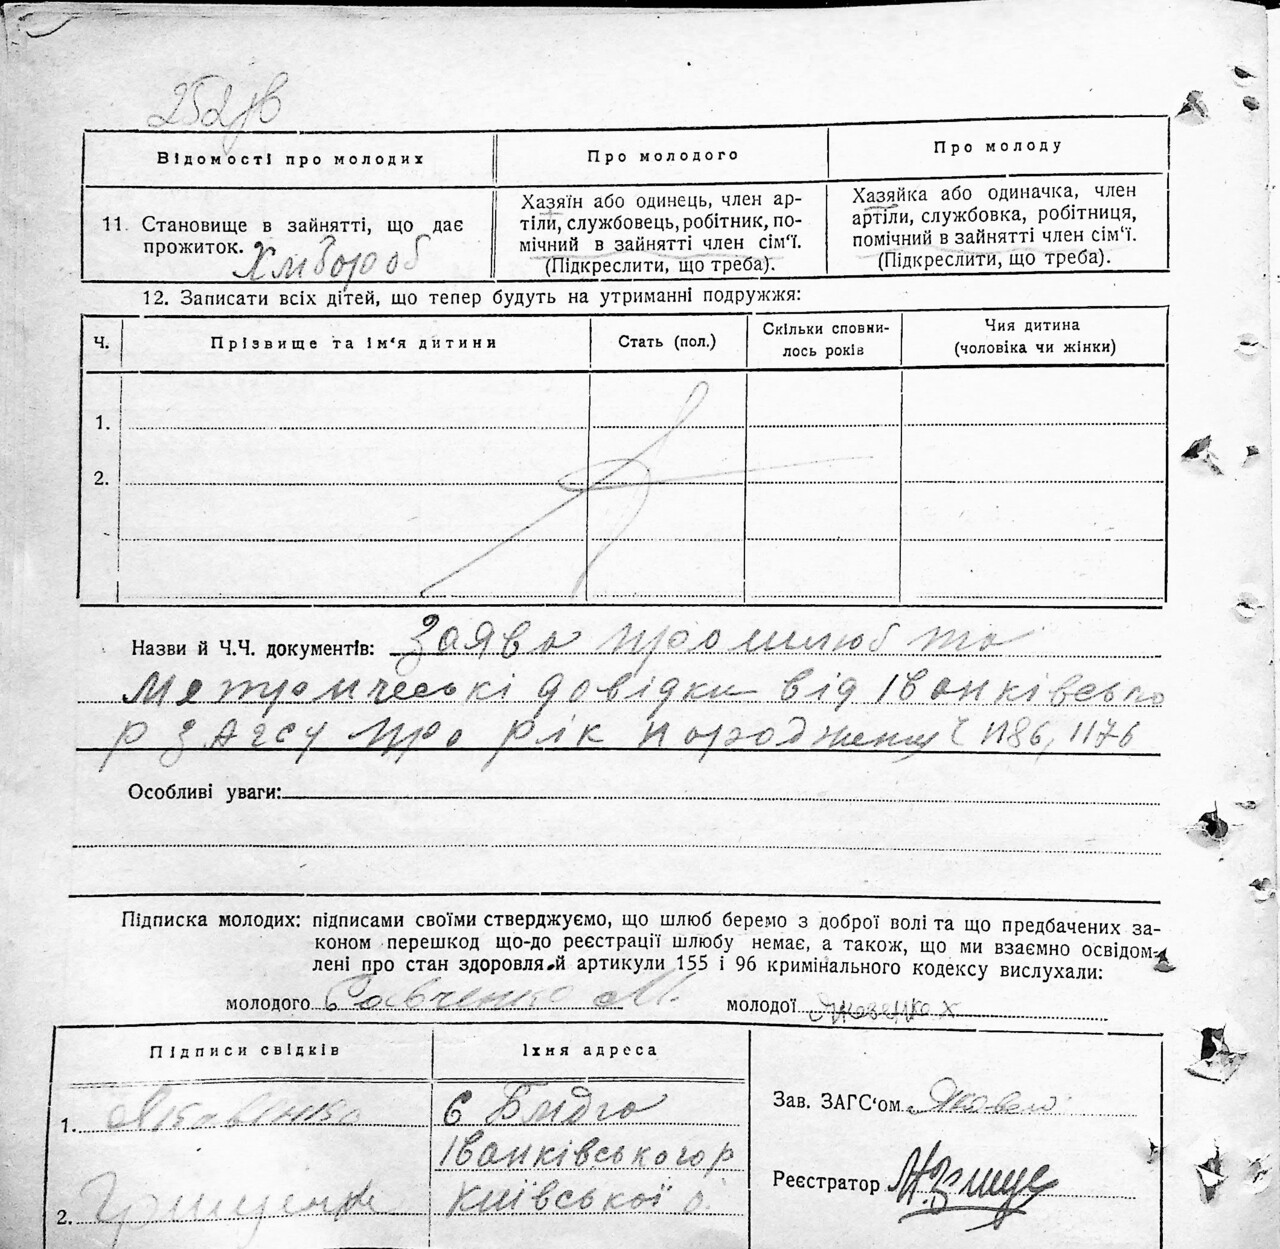 252
Відомості про молодих
Про молодого
Про молоду
11. Становище в зайнятті, що дає
прожиток. Хлібороб
Хазяїн або одинець, член ар-
тіли, службовець, робітник, по-
мічний в зайнятті член сім'ї.
(Підкреслити, що треба).
Хазяйка або одиначка, член
артіли, службовка, робітниця,
помічний в зайнятті член сім'ї.
(Підкреслити, що треба).
12. Записати всіх дітей, що тепер будуть на утриманні подружжя:
Ч.
Прізвище та ім'я дитини
Стать (пол.)
Скільки сповни-
лось років
Чия дитина
(чоловіка чи жінки)
1.
2.
Назви й Ч.Ч. документів: Заява про шлюб та
метричеські довідки від Іванківсько
р ЗАГСу про рік народження ч 1186, 1176
Особливі уваги:
Підписка молодих: підписами своїми стверджуємо, що шлюб беремо з доброї волі та що предбачених за-
коном перешкод що-до реєстрації шлюбу немає, а також, що ми взаємно освідом-
лені про стан здоровля й артикули 155 і 96 кримінального кодексу вислухали:
молодого Савченко М.
молодої
Підписи свідків
Їхня адреса
1.
с Блідча
Іванківського р
2. Грищенко
Київської о.
Зав. ЗАГС'ом
Реєстратор